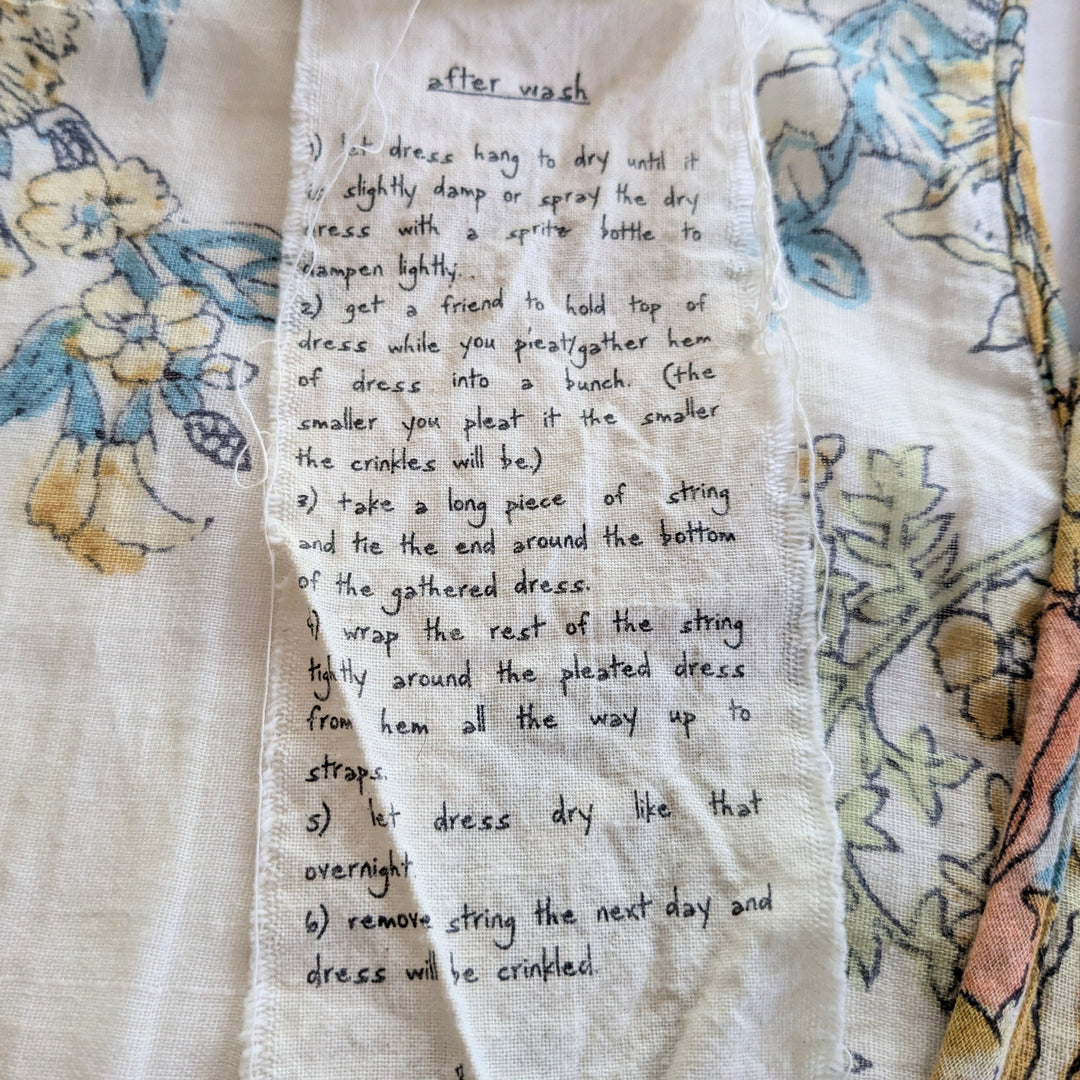 after wash
1) let dress hang to dry until it
is slightly damp or spray the dry
dress with a spritz bottle to
dampen lightly..
2) get a friend to hold top of
dress while you pleat/gather hem
of dress into a bunch. (the
smaller you pleat it the smaller
the crinkles will be.)
3) take a long piece of string
and tie the end around the bottom
of the gathered dress.
4) wrap the rest of the string
tightly around the pleated dress
from hem all the way up to
straps.
5) let dress dry like that
overnight
6) remove string the next day and
dress will be crinkled.